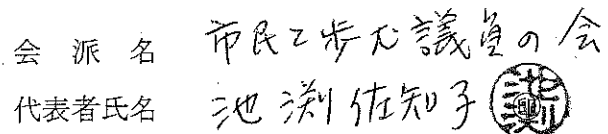 会派名 市民と歩む議員の会
代表者氏名 池渕佐知子 池渕